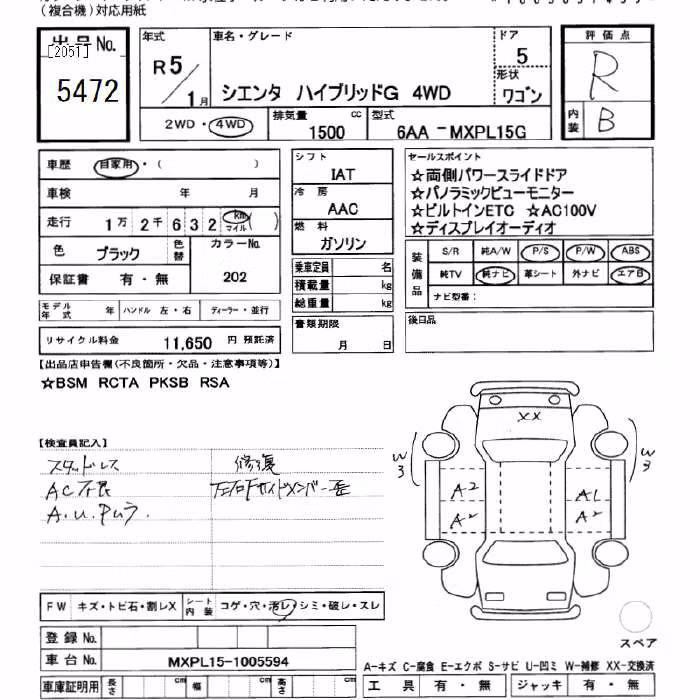 (複合機)対応用紙
出品No.
[2051]
5472
年式
R5/1月
車名・グレード
シエンタ ハイブリッドG 4WD
ドア
5
形状
ワゴン
評価点
R
内装
B
2WD・4WD
排気量
1500 cc
型式
6AA-MXPL15G
車歴 自家用・( )
車検 年 月
走行 1万2千632 km マイル ( )
色 ブラック 色替
カラーNo.
202
保証書 有・無
シフト
IAT
冷房
AAC
燃料
ガソリン
乗車定員 名
積載量 kg
総重量 kg
セールスポイント
☆両側パワースライドドア
☆パノラミックビューモニター
☆ビルトインETC ☆AC100V
☆ディスプレイオーディオ
装備品
S/R 純A/W P/S P/W ABS
純TV 純ナビ 革シート 外ナビ エアB
ナビ型番:
モデル年式 年 ハンドル 左・右 ディーラー・並行
リサイクル料金 11,650 円 預託済
書類期限
月 日
後日品
【出品店申告欄(不良箇所・欠品・注意事項等)】
☆BSM RCTA PKSB RSA
【検査員記入】
スタッドレス 修復
AC不良
A.U.Pムラ.
XX
W3 W3
A2 A1
A2 A2
FW キズ・トビ石・割レX シート内装 コゲ・穴・汚レ・シミ・破レ・スレ
スペア
登録No.
車台No. MXPL15-1005594
A-キズ C-腐食 E-エクボ S-サビ U-凹ミ W-補修 XX-交換済
車庫証明用 長さ cm 幅 cm 高さ cm
工具 有・無 ジャッキ 有・無